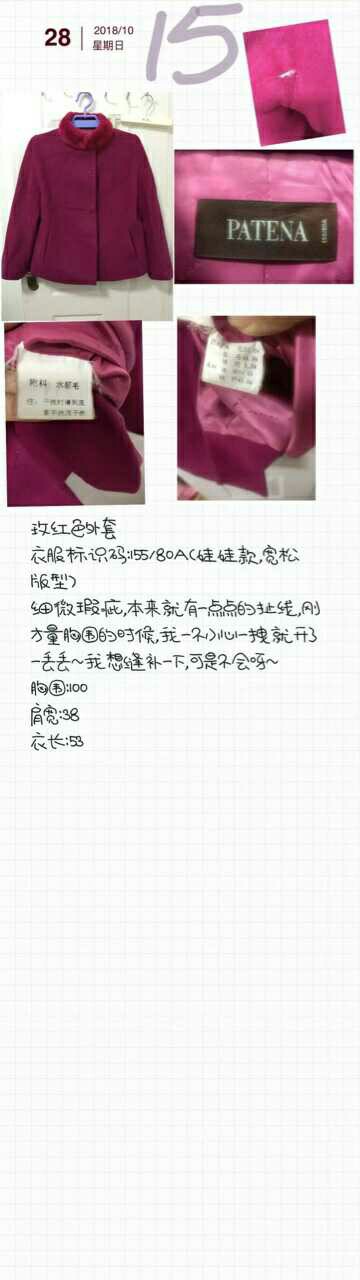 28
2018/10
星期日
15
PATENA
155/80A
附料：水貂毛
注：干洗时请到连
玫红色外套
衣服标识码:155/80A(娃娃款,宽松
版型)
细微瑕疵,本来就有一点点的扯线,刚
才量胸围的时候,我一不小心一拽就开了
一丢丢~我想缝补一下,可是不会呀~
胸围:100
肩宽:38
衣长:53